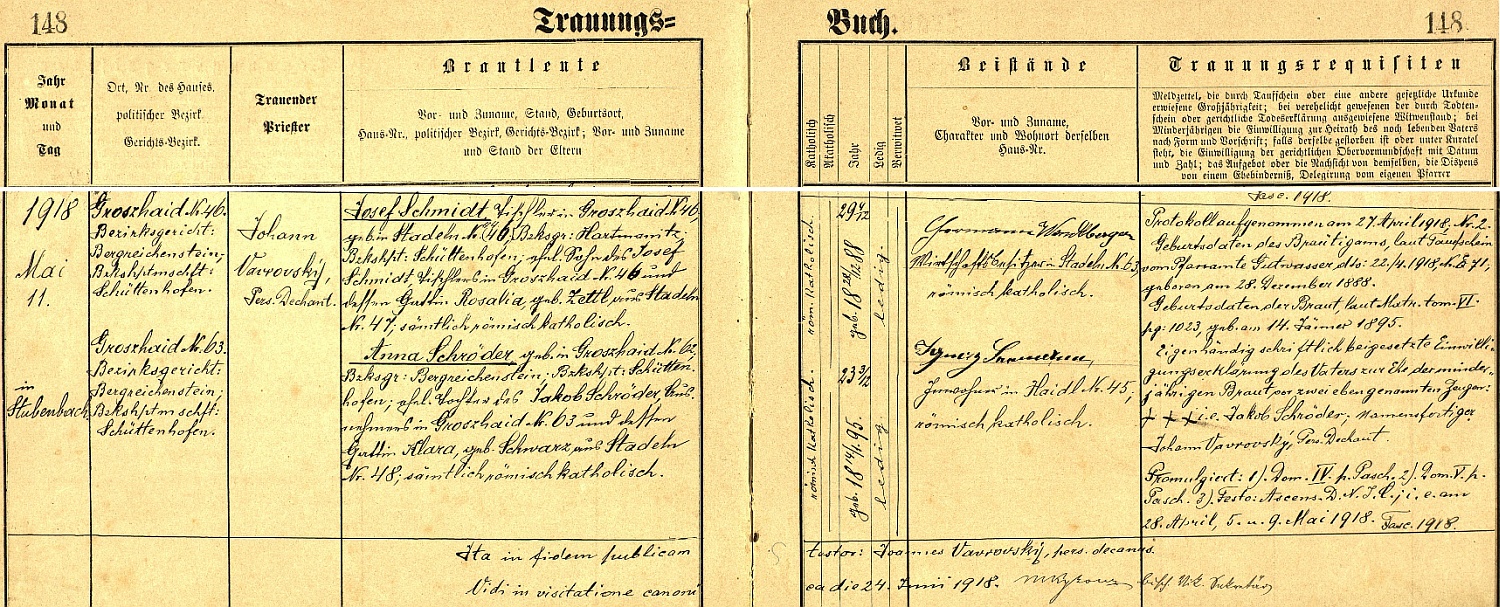 148
Trauungs=
Buch.
148
Jahr
Monat
und
Tag
Ort, Nr. des Hauses,
politischer Bezirk,
Gerichts-Bezirk.
Trauender
Priester
Brautleute
Vor- und Zuname, Stand, Geburtsort,
Haus-Nr., politischer Bezirk, Gerichts-Bezirk; Vor- und Zuname
und Stand der Eltern
Katholisch
Akatholisch
Jahr
Ledig
Verwitwet
Beistände
Vor- und Zuname,
Charakter und Wohnort derselben
Haus-Nr.
Trauungsrequisiten
Meldzettel, die durch Taufschein oder eine andere gesetzliche Urkunde
erwiesene Großjährigkeit; bei verehelicht gewesenen der durch Todten-
schein oder gerichtliche Todeserklärung ausgewiesene Witwenstand; bei
Minderjährigen die Einwilligung zur Heirath des noch lebenden Vaters
nach Form und Vorschrift; falls derselbe gestorben ist oder unter Kuratel
steht, die Einwilligung der gerichtlichen Obervormundschaft mit Datum
und Zahl; das Aufgebot oder die Nachsicht von demselben, die Dispens
von einem Ehehinderniß, Delegirung vom eigenen Pfarrer
1918
Mai
11.
in
Stubenbach
Groszhaid Nr. 46.
Bezirksgericht:
Bergreichenstein;
Bzkshptmschft:
Schüttenhofen.
Groszhaid Nr. 63.
Bezirksgericht:
Bergreichenstein;
Bzkshptmschft:
Schüttenhofen.
Johann
Vavrovský,
Pers. Dechant.
Josef Schmidt, Tischler in Groszhaid Nr 46,
geb. in Stadeln Nr. 46; Bzksgr: Hartmanitz;
Bzkshpt: Schüttenhofen; ehel. Sohn des Josef
Schmidt, Tischlers in Groszhaid Nr. 46 und
dessen Gattin Rosalia, geb. Zettl, aus Stadeln
Nr. 47; sämtlich römisch katholisch.
Anna Schröder, geb. in Groszhaid Nr. 62,
Bzksgr: Bergreichenstein; Bzkshpt: Schütten-
hofen; ehel. Tochter des Jakob Schröder, Aus-
nehmers in Groszhaid Nr. 63 und dessen
Gattin Klara, geb. Schwarz, aus Stadeln
Nr. 48; sämtlich römisch katholisch.
röm. katholisch.
29 4/12
geb. 18 28/12 88
ledig
römisch katholisch.
23 3/12
geb. 18 14/1 95.
ledig
Hermann
Wirtschaftsbesitzer in Stadeln Nr. 63,
römisch katholisch.
Ignaz
Inwohner in Haidl Nr. 45,
römisch katholisch.
Fasc. 1918.
Protokoll aufgenommen am 27. April 1918, Nr. 2.
Geburtsdaten des Bräutigams, laut Taufschein
vom Pfarramte Gutwasser, dto: 22./4. 1918, Nr. E 71,
geboren am 28. Dezember 1888.
Geburtsdaten der Braut, laut Matr. tom. VI.
pg: 1023, geb. am 14. Jänner 1895.
Eigenhändig schriftlich beigesetzte Einwilli-
gungserklärung des Vaters zur Ehe der minder-
jährigen Braut, vor zwei ebengenannten Zeugen:
+ + + i. e. Jakob Schröder, Namensfertiger
Johann Vavrovský, Pers. Dechant.
Promulgiert: 1). Dom. IV. p. Pasch. 2). Dom. V. p.
Pasch. 3). Festo: Ascens. D. N. J. C.; i. e. am
28. April, 5. u. 9. Mai 1918. Fasc. 1918.
Ita in fidem publicam
testor: Joannes Vavrovský, pers. decanus.
Vidi in visitatione canoni
ca die 24. Juni 1918. bisch. Vik. Sekretär